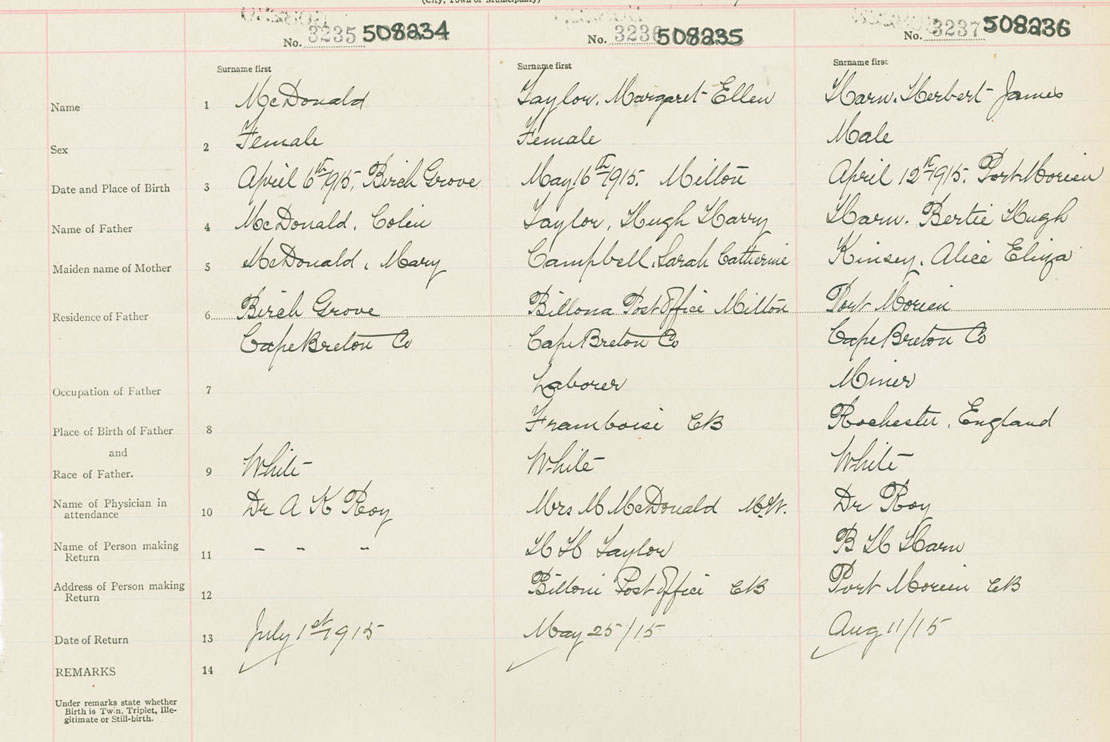 (City, Town or Municipality)
No. 3235 508234
No. 3236 508235
No. 3237 508236
Surname first
Surname first
Surname first
Name 1 McDonald
Taylor, Margaret Ellen
Harn, Herbert James
Sex 2 Female
Female
Male
Date and Place of Birth 3 April 6th 1915, Birch Grove
May 16th 1915. Milton
April 12th 1915. Port Morien
Name of Father 4 McDonald, Colin
Taylor, Hugh Harry
Harn. Bertie Hugh
Maiden name of Mother 5 McDonald, Mary
Campbell, Sarah Catherine
Kinsey, Alice Eliza
Residence of Father 6 Birch Grove
Billona Post Office Milton
Port Morien
Cape Breton Co
Cape Breton Co
Cape Breton Co
Occupation of Father 7
Laborer
Miner
Place of Birth of Father 8
Framboise CB
Rochester, England
and
Race of Father. 9 White
White
White
Name of Physician in
attendance 10 Dr A K Roy
Mrs M McDonald M.W.
Dr Roy
Name of Person making
Return 11 - - -
H H Taylor
B H Harn
Address of Person making
Return 12
Billoni Post Office CB
Port Morien CB
Date of Return 13 July 1st 1915
May 25/15
Aug 11/15
REMARKS 14
Under remarks state whether
Birth is Twin, Triplet, Ille-
gitimate or Still-birth.